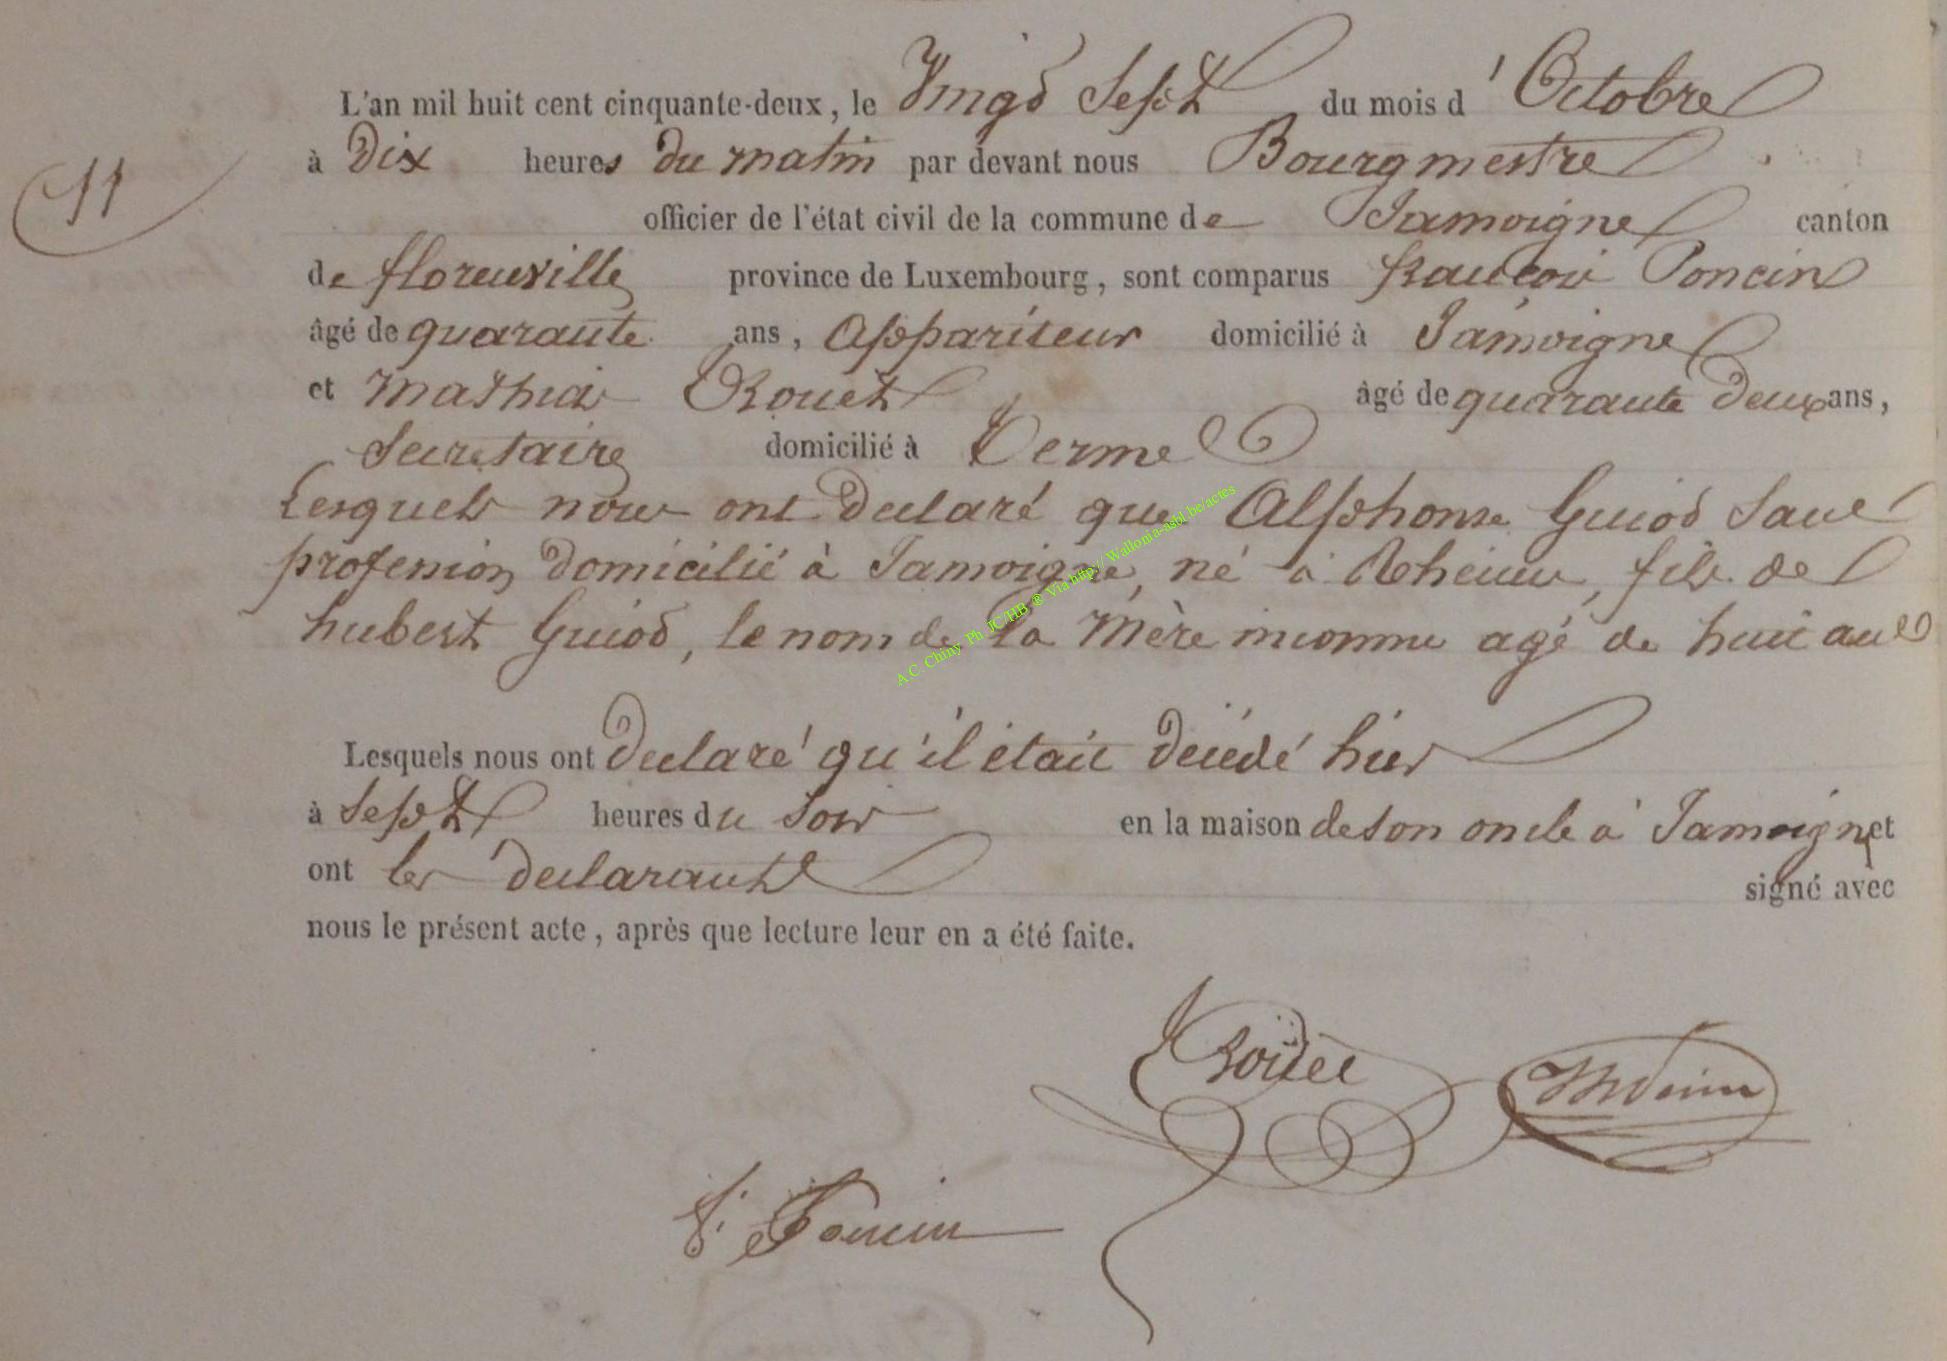 L'an mil huit cent cinquante-deux, le Vingt Sept du mois d'Octobre
11
à Dix heures du matin par devant nous Bourgmestre
officier de l'état civil de la commune de Jamoigne canton
de florenville province de Luxembourg, sont comparus francois Poncin
âgé de quarante ans, Appariteur domicilié à Jamoigne
et Mathias Rouet âgé de quarante deux ans,
Secretaire domicilié à Terme
Lesquels nous ont declaré que Alphonse Guiot Sans
profession domicilié à Jamoigne, né à Rheims, fils de
hubert Guiot, le nom de la Mère inconnu agé de huit ans
A.C. Chiny Ph JC/HB ® Via http://Wallonia-asbl.be/actes
Lesquels nous ont declaré qu'il était décédé hier
à Sept heures du Soir en la maison de son oncle à Jamoigne et
ont les declarants signé avec
nous le présent acte, après que lecture leur en a été faite.
Rouet
f. Poncin